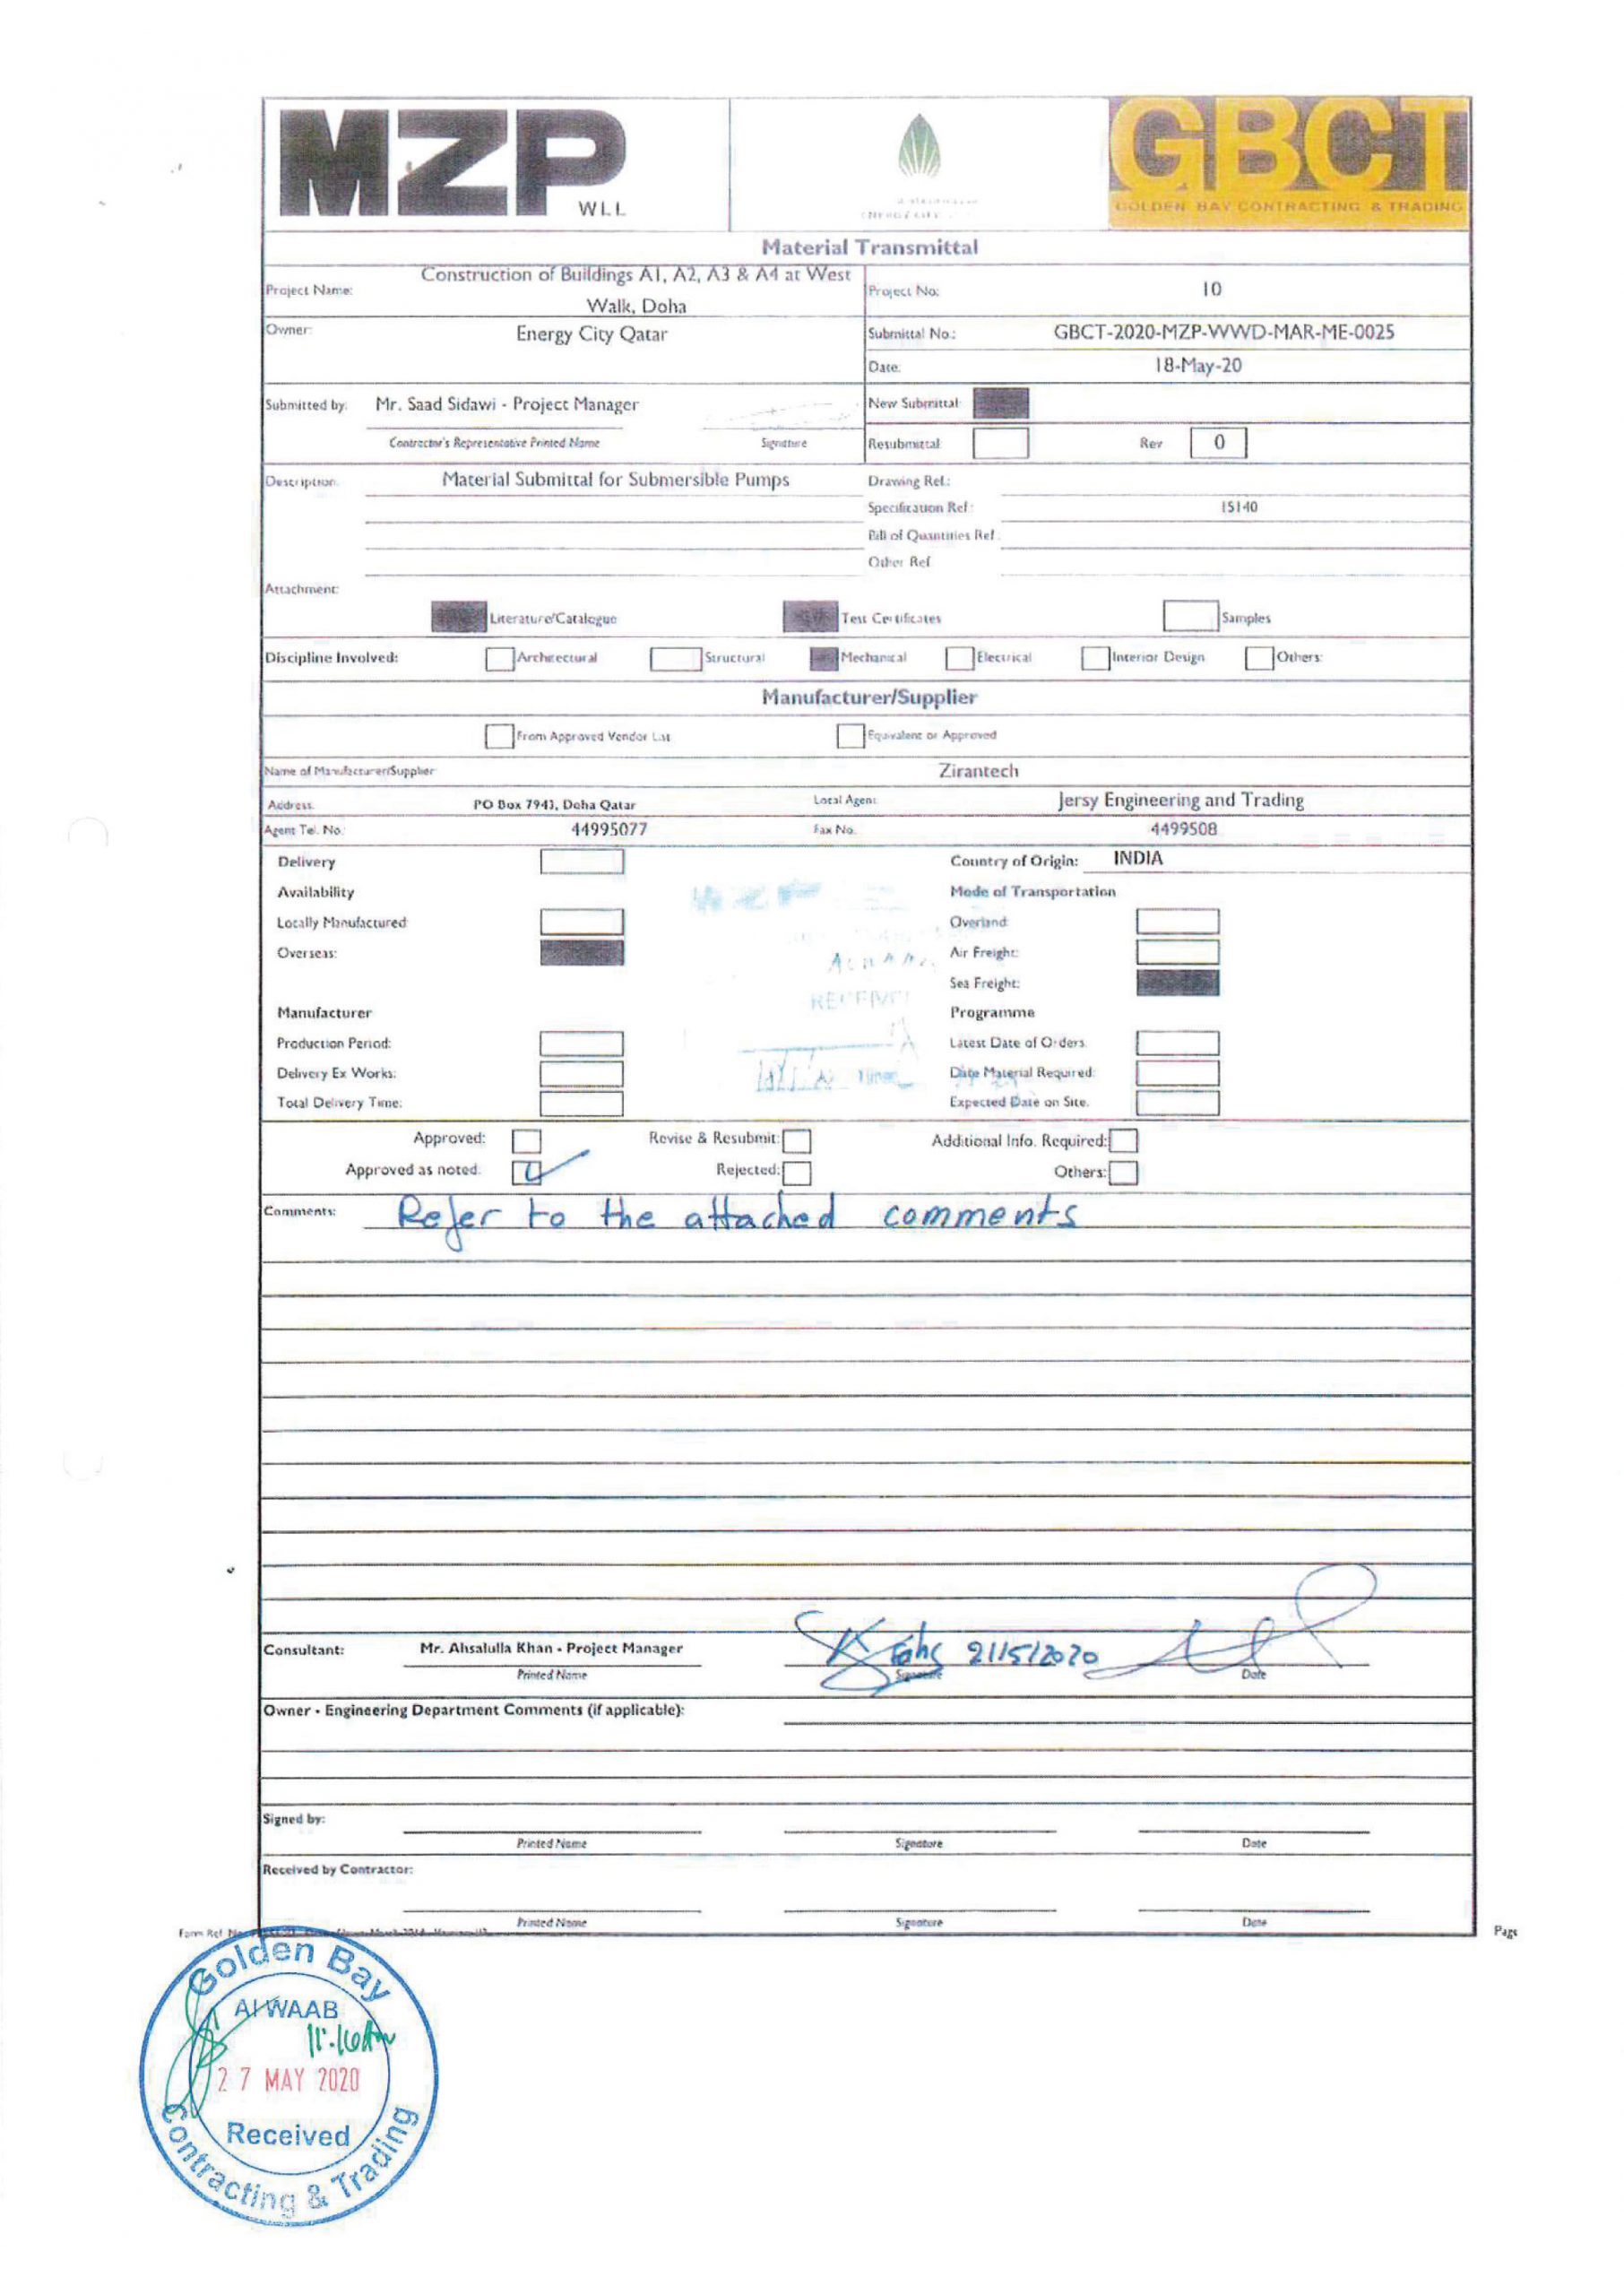 MZP
WLL
GBCT
GOLDEN BAY CONTRACTING & TRADING
Material Transmittal
Project Name: Construction of Buildings A1, A2, A3 & A4 at West Walk, Doha
Project No: 10
Owner: Energy City Qatar
Submittal No.: GBCT-2020-MZP-WWD-MAR-ME-0025
Date: 18-May-20
Submitted by: Mr. Saad Sidawi - Project Manager
New Submittal
Contractor's Representative Printed Name Signature
Resubmittal Rev 0
Description: Material Submittal for Submersible Pumps
Drawing Ref.:
Specification Ref: 15140
Bill of Quantities Ref.
Other Ref
Attachment:
Literature/Catalogue Test Certificates Samples
Discipline Involved: Architectural Structural Mechanical Electrical Interior Design Others:
Manufacturer/Supplier
From Approved Vendor List Equivalent or Approved
Name of Manufacturer/Supplier Zirantech
Address: PO Box 7943, Doha Qatar Local Agent: Jersy Engineering and Trading
Agent Tel. No.: 44995077 Fax No. 4499508
Delivery Country of Origin: INDIA
Availability Mode of Transportation
Locally Manufactured Overland:
Overseas: Air Freight:
Sea Freight:
Manufacturer Programme
Production Period: Latest Date of Orders
Delivery Ex Works: Date Material Required:
Total Delivery Time: Expected Date on Site.
MZP
RECEIVED
Approved: Revise & Resubmit: Additional Info. Required:
Approved as noted: Rejected: Others:
Comments: Refer to the attached comments
Consultant: Mr. Ahsalulla Khan - Project Manager 21/5/2020
Printed Name Signature Date
Owner - Engineering Department Comments (if applicable):
Signed by:
Printed Name Signature Date
Received by Contractor:
Printed Name Signature Date
Form Ref. No
Page
Golden Bay
Al WAAB
27 MAY 2020
Received
Contracting & Trading